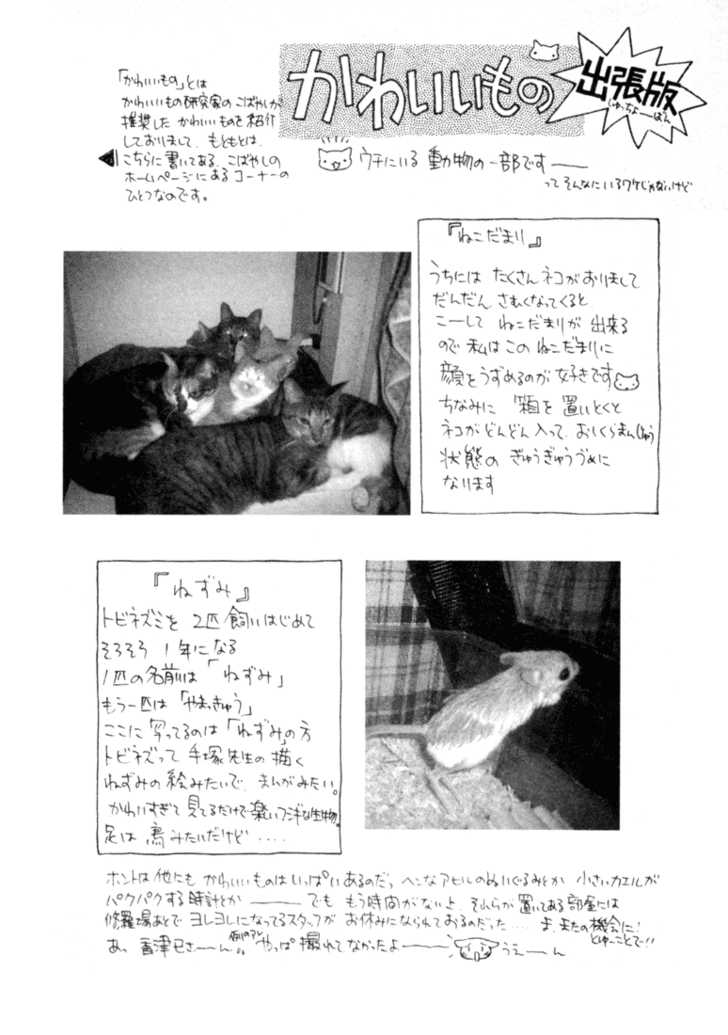 かわいいもの
出張版
しゅっちょーばん
「かわいいもの」とは
かわいいもの研究家のこばやしが
推奨したかわいいものを紹介
しておりまして、もともとは、
◀こちらに書いてある、こばやしの
ホームページにあるコーナーの
ひとつなのです。
ウチにいる動物の一部です——
ってそんなにいるワケじゃないけど
『ねこだまり』
うちには たくさんネコがおりまして
だんだん さむくなってくると
こーして ねこだまりが 出来る
ので 私は この ねこだまりに
顔をうずめるのが 好きです
ちなみに 箱を 置いとくと
ネコがどんどん入って、おしくらまんじゅう
状態の ぎゅうぎゅうづめに
なります
『ねずみ』
トビネズミを 2匹 飼いはじめて
そろそろ 1年になる
1匹の名前は「ねずみ」
もう一匹は「やきゅう」
ここに 写ってるのは「ねずみ」の方
トビネズって 手塚先生の 描く
ねずみの絵みたいで、まんがみたい。
かわいすぎて 見てるだけで楽しいフシギな生物。
足は 鳥みたいだけど ‥‥
ホントは他にも かわいいものはいっぱいあるのだっ ヘンなアヒルのぬいぐるみとか 小さいカエルが
パクパクする時計とか——— でも もう時間がないよ、それらが置いてある部屋には
修羅場あとで ヨレヨレになってるスタッフが お休みになられておるのだった‥‥ ま、またの機会に!
とゆーことで!!
あ、 津己さーん 例のアレ やっぱ撮れてなかったよ——— うえーーん